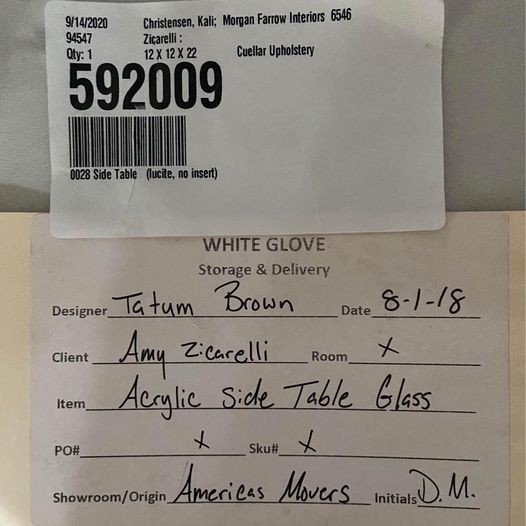 9/14/2020 Christensen, Kali; Morgan Farrow Interiors 6546
94547 Zicarelli :
Qty: 1 12 X 12 X 22 Cuellar Upholstery
592009
0028 Side Table (lucite, no insert)
WHITE GLOVE
Storage & Delivery
Designer Tatum Brown Date 8-1-18
Client Amy Zicarelli Room X
Item Acrylic Side Table Glass
PO# X Sku# X
Showroom/Origin Americas Movers Initials D.M.